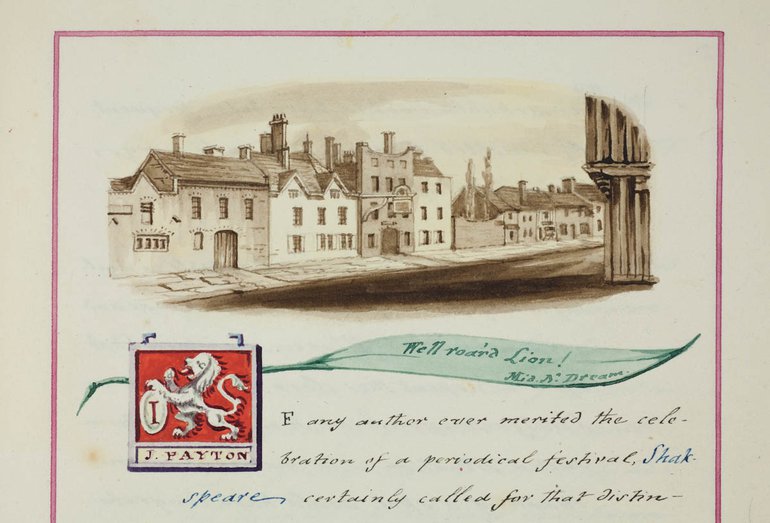 Well roar'd Lion!
Mid. N.s Dream.
I
J. PAYTON.
F any author ever merited the cele-
bration of a periodical festival, Shak-
speare, certainly called for that distin-